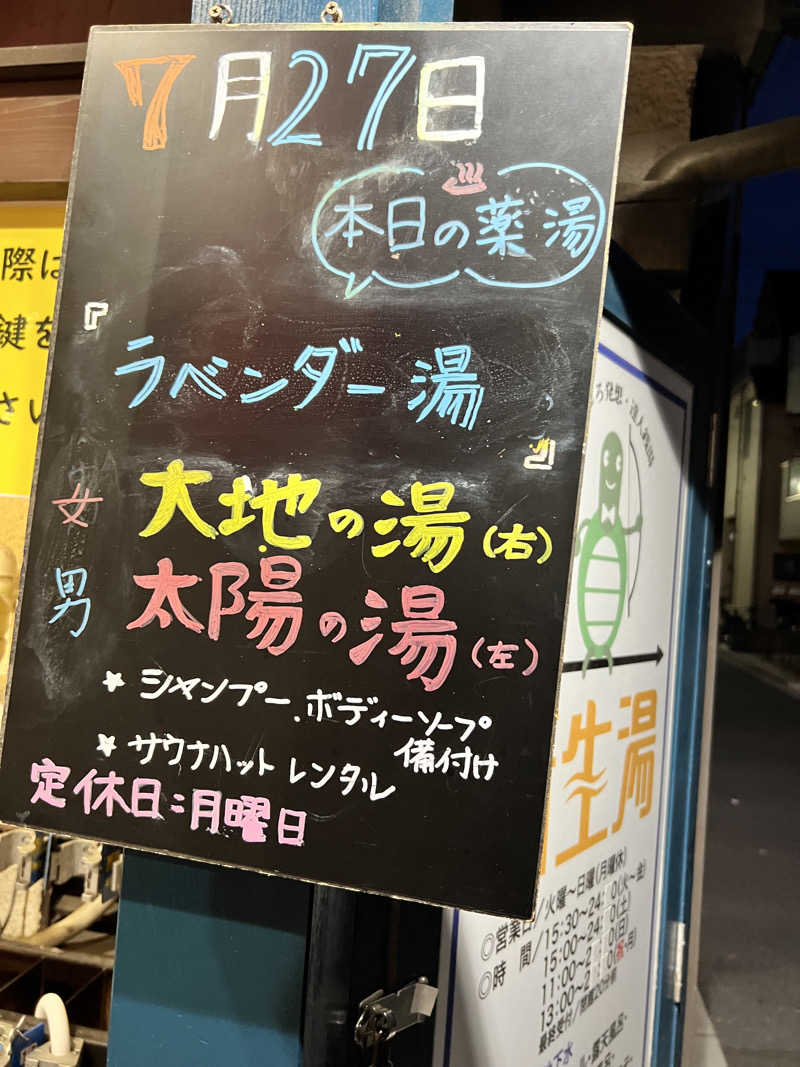 7月27日
本日の薬湯
『
ラベンダー湯
』
女 大地の湯(右)
男 太陽の湯(左)
☆ シャンプー、ボディーソープ
備付け
☆ サウナハット レンタル
定休日:月曜日
際は
鍵を
さい
生湯
◎営業日/火曜~日曜(月曜休)
◎時 間/15:30~24:00(火~金)
15:00~24:00(土)
11:00~
13:00~
最終受付/閉館20分前
下水
露天風呂